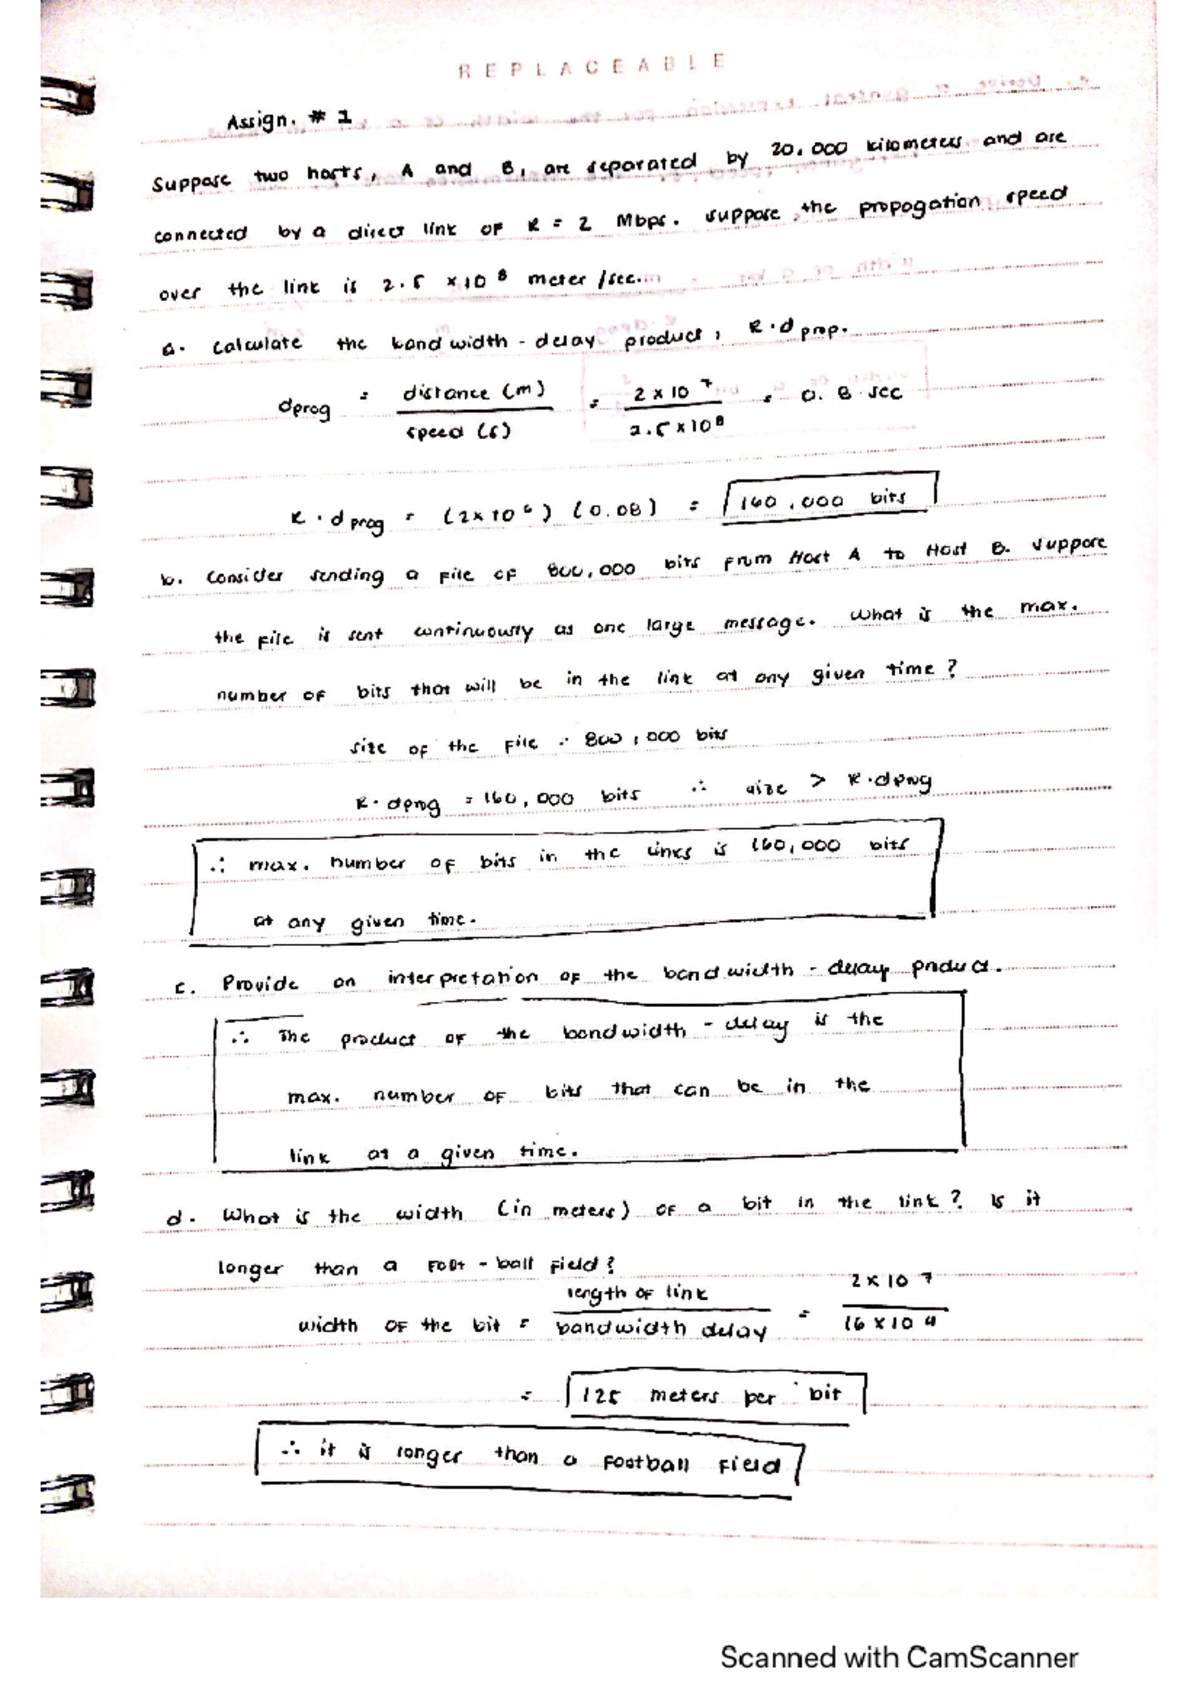 REPLACEABLE
Assign. # 1
Suppose two hosts, A and B, are separated by 20,000 kilometers and are
connected by a direct link of R = 2 Mbps. Suppose the propogation speed
over the link is 2.5 x 10^8 meter/sec.
a. Calculate the band width - delay product, R·dprop.
dprog = distance (m) / speed (s) = 2 x 10^7 / 2.5 x 10^8 = 0.8 sec
R · dprog = (2x10^6) (0.08) = 160,000 bits
b. Consider sending a file of 800,000 bits from Host A to Host B. Suppose
the file is sent continuously as one large message. What is the max.
number of bits that will be in the link at any given time?
size of the file : 800,000 bits
R · dprog = 160,000 bits ∴ size > R·dprog
∴ max. number of bits in the links is 160,000 bits
at any given time.
c. Provide an interpretation of the bandwidth - delay product.
∴ The product of the bandwidth - delay is the
max. number of bits that can be in the
link at a given time.
d. What is the width (in meters) of a bit in the link? Is it
longer than a foot - ball field?
width of the bit = length of link / bandwidth delay = 2 x 10^7 / 16 x 10^4
= 125 meters per bit
∴ it is longer than a football field
Scanned with CamScanner